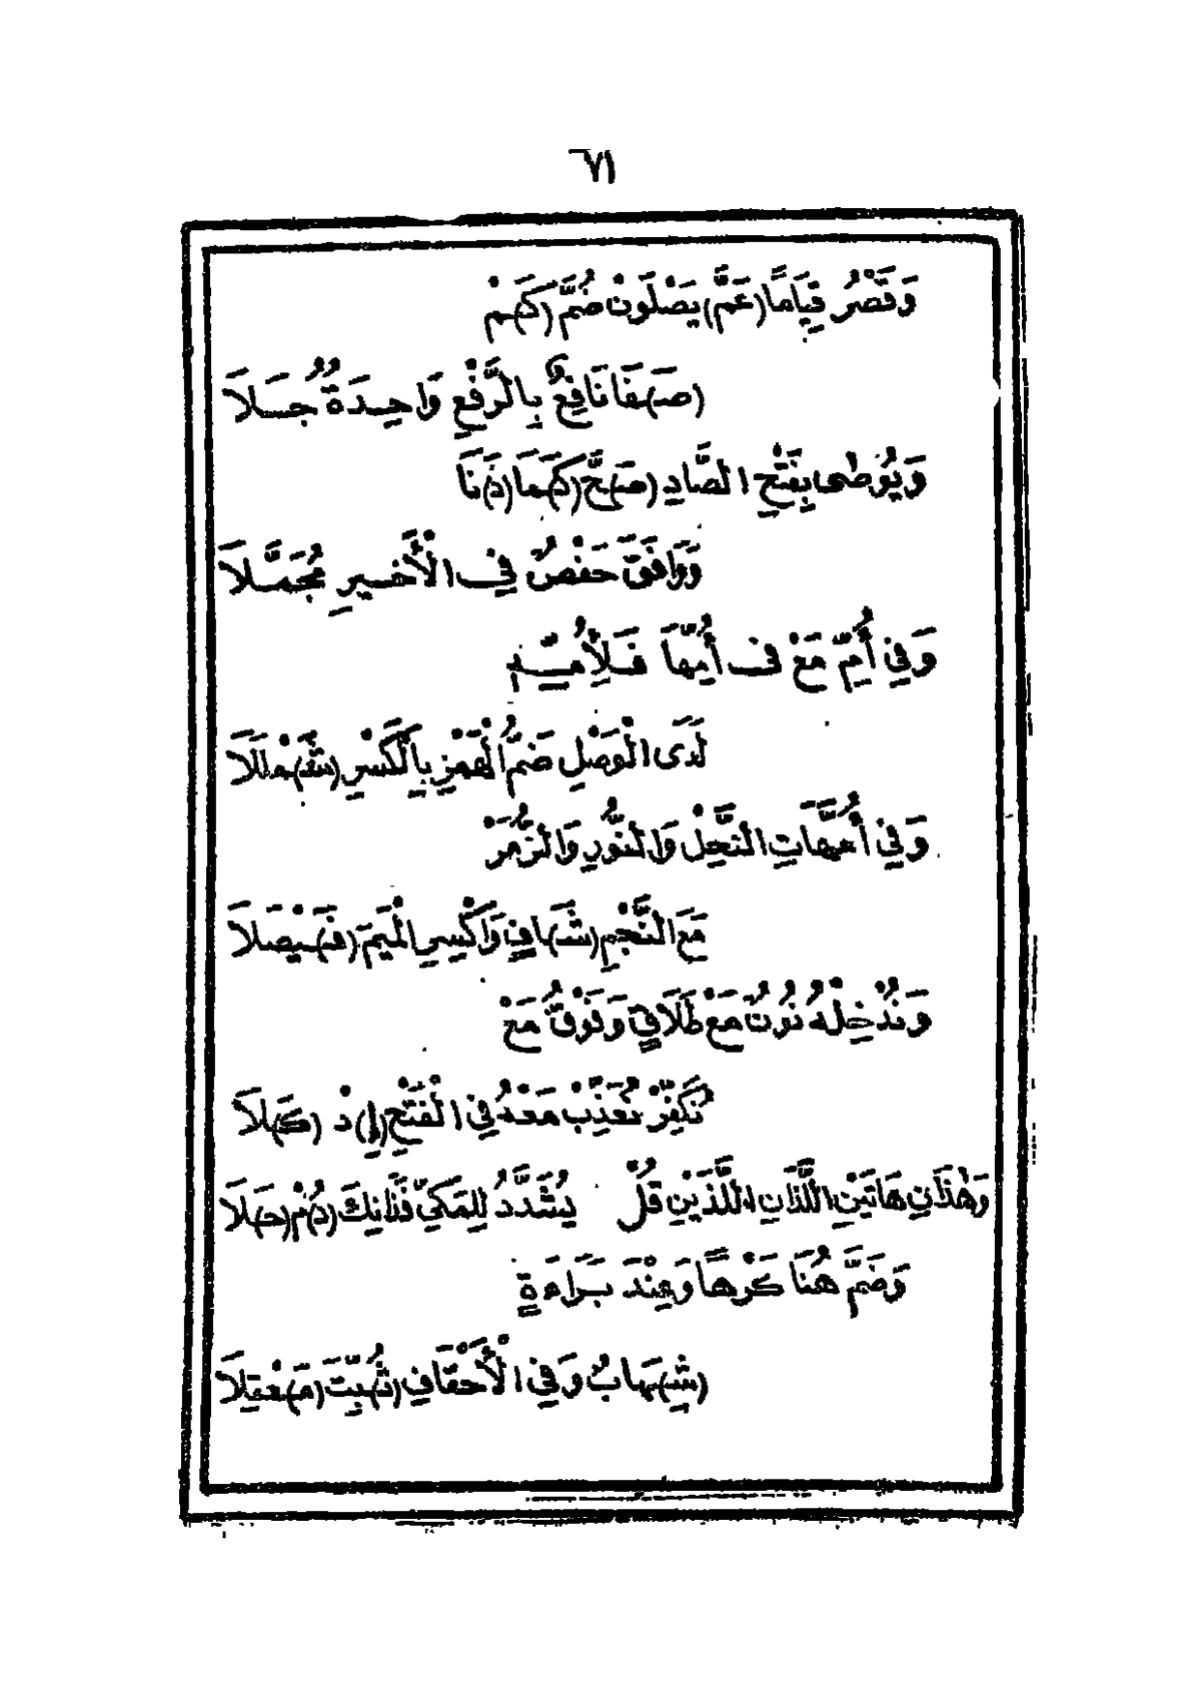 ٦٧١
وَقَصْرُ قِيَامًا (عَمَّ) يَصْلَوْنَ ضُمَّ (كَ)ـمْ
(صَ)ـفَا نَافِعٌ بِالرَّفْعِ وَاحِدَةٌ جَلَا
وَيُوصَى بِفَتْحِ الصَّادِ (صَ)ـحَّ (كَـ)ـمَا (دَ)نَا
وَوَافَقَ حَفْصٌ فِي الْأَخِيرِ مُجَمَّلَا
وَفِي أُمِّ مَعْ فِي أُمِّهَا فَلِأُمِّهِ
لَدَى الْوَصْلِ ضَمُّ الْهَمْزِ بِالْكَسْرِ (شَـ)ـمْلَلَا
وَفِي أُمَّهَاتِ النَّحْلِ وَالنُّورِ وَالزُّمَرْ
مَعَ النَّجْمِ (شَـ)ـافٍ وَاكْسِرِ الْمِيمَ (فَـ)ـيْصَلَا
وَنُدْخِلْهُ نُونٌ مَعْ طَلَاقٍ وَفَوْقُ مَعْ
نُكَفِّرْ نُعَذِّبْ مَعْهُ فِي الْفَتْحِ (إِ)ذْ (كَـ)ـلَا
وَهٰذَانِ هَاتَيْنِ اللَّذَانِ اللَّذَيْنِ قُلْ يُشَدَّدُ لِلْمَكِّي فَذَانِكَ (دُ)مْ (حَـ)ـلَا
وَضَمَّ هُنَا كَرْهًا وَعِنْدَ بَرَاءَةٍ
(شِـ)ـهَابٌ وَفِي الْأَحْقَافِ (ثُـ)ـبِّتَ (مَـ)ـعْقِلَا